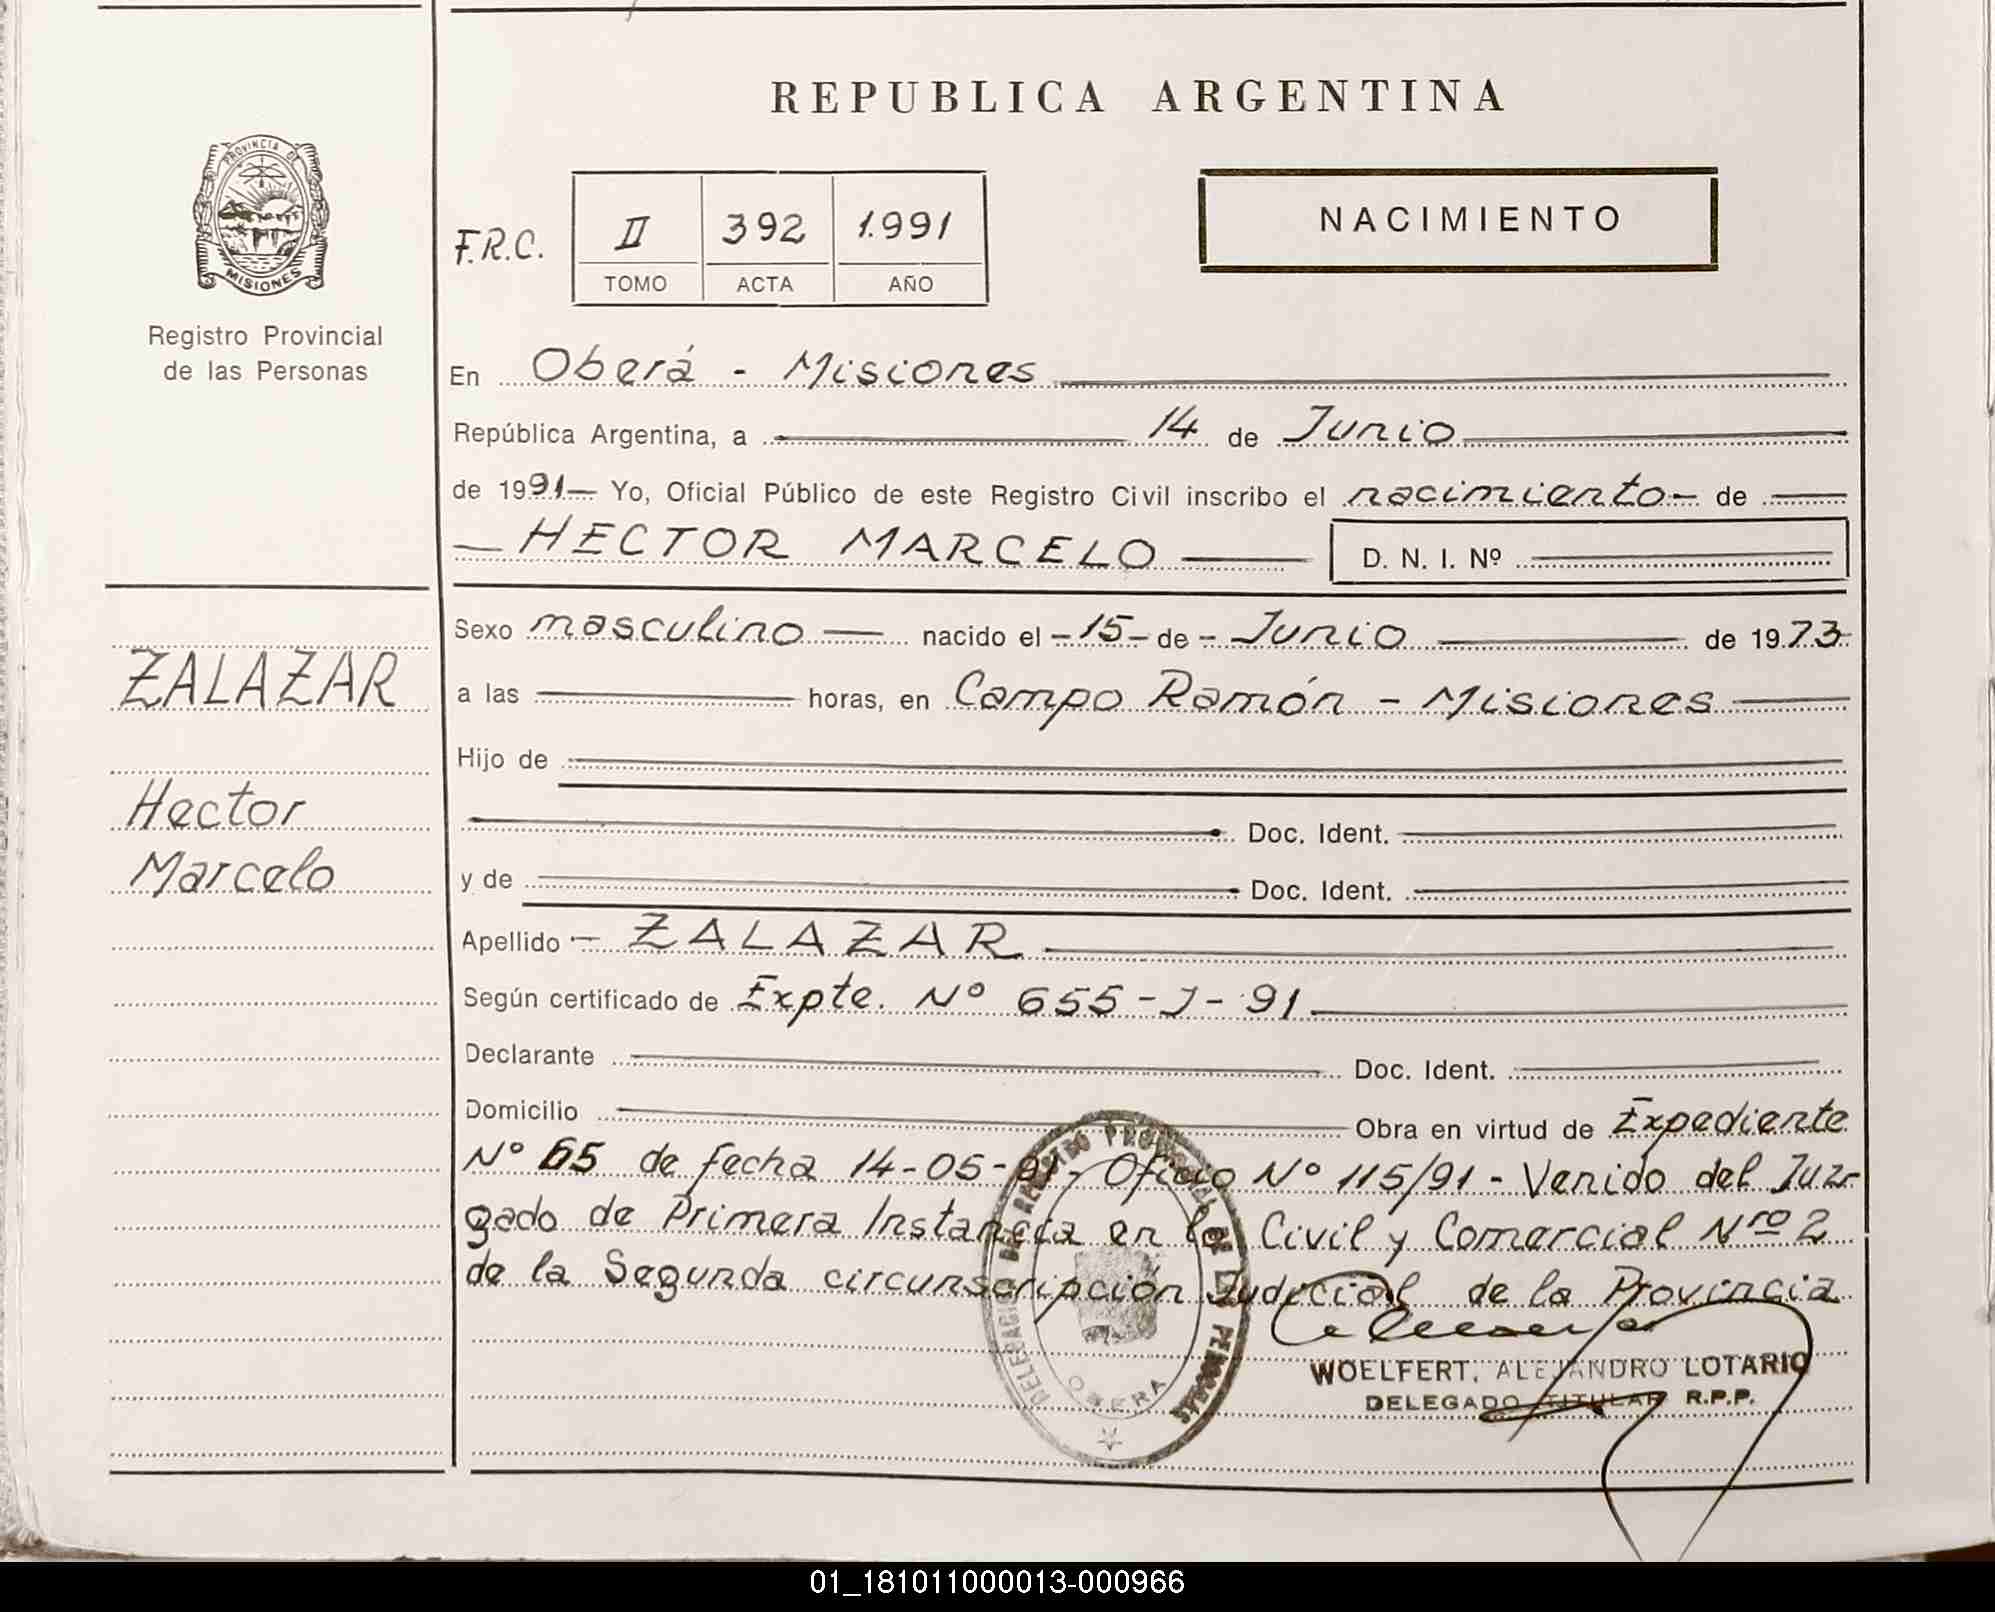 REPUBLICA ARGENTINA
PROVINCIA DE
MISIONES
Registro Provincial
de las Personas
F.R.C.
II 392 1.991
TOMO ACTA AÑO
NACIMIENTO
En Oberá - Misiones
República Argentina, a 14 de Junio
de 1991 - Yo, Oficial Público de este Registro Civil inscribo el nacimiento - de
HECTOR MARCELO D. N. I. Nº
ZALAZAR
Hector
Marcelo
Sexo masculino nacido el - 15 - de - Junio de 1973
a las horas, en Campo Ramón - Misiones
Hijo de
Doc. Ident.
y de Doc. Ident.
Apellido - ZALAZAR
Según certificado de Expte. Nº 655-J-91
Declarante Doc. Ident.
Domicilio Obra en virtud de Expediente
Nº 65 de fecha 14-05-91 - Oficio Nº 115/91 - Venido del Juz-
gado de Primera Instancia en lo Civil y Comercial Nro 2
de la Segunda circunscripción Judicial de la Provincia
DELEGACION DEL REGISTRO PROVINCIAL DE LAS PERSONAS
OBERA
WOELFERT, ALEJANDRO LOTARIO
DELEGADO TITULAR R.P.P.
01_181011000013-000966